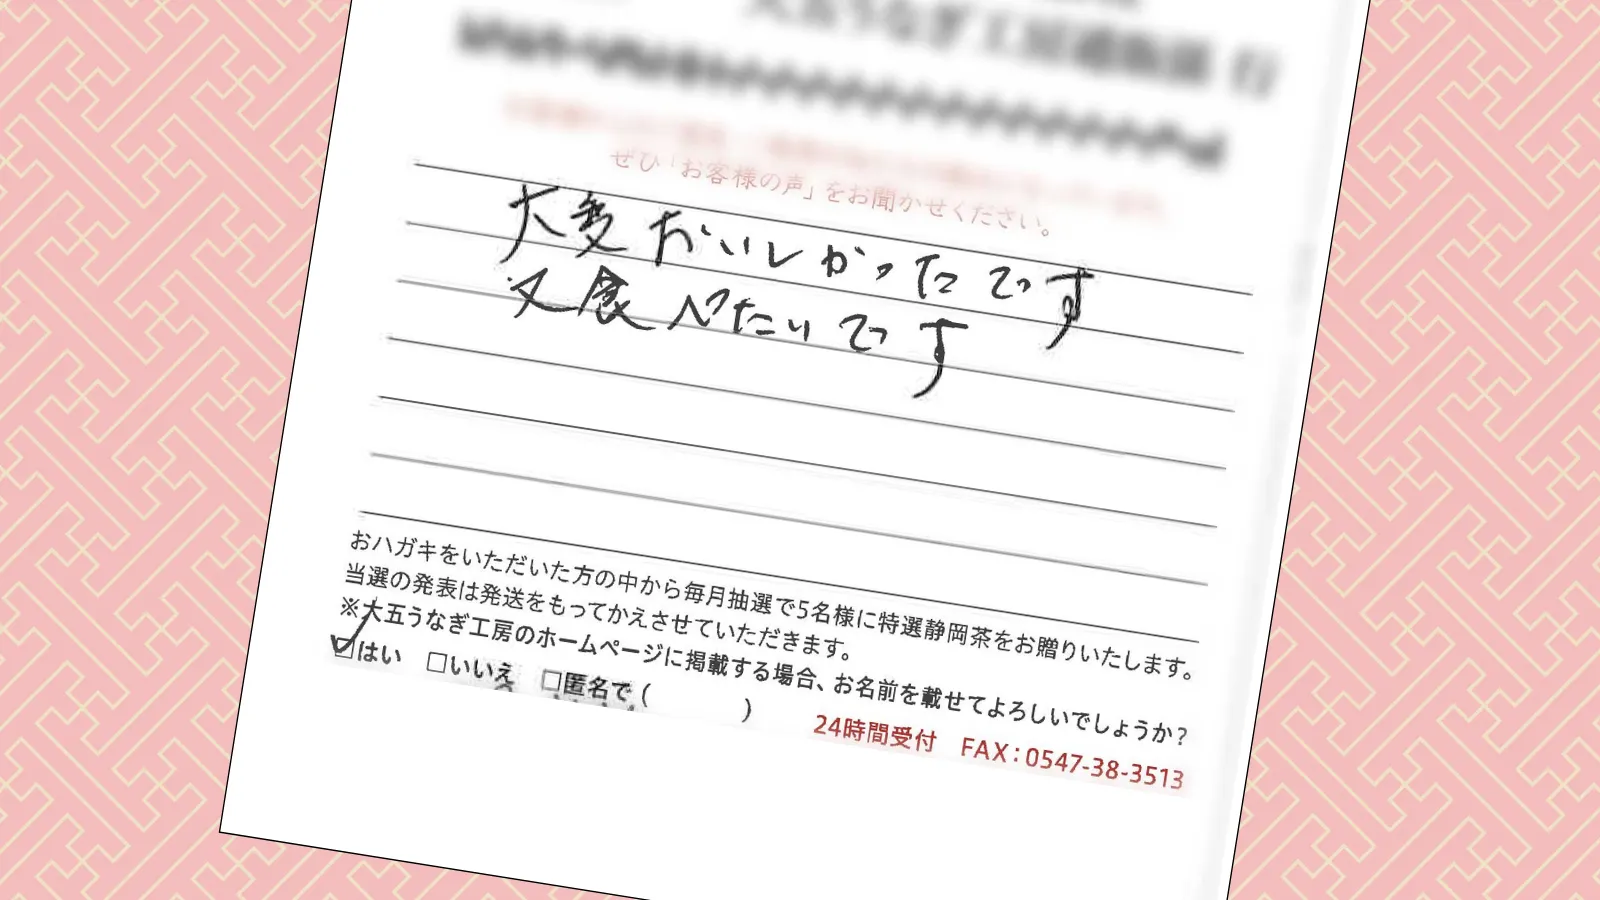 大五うなぎ工房通販部 行
ぜひ「お客様の声」をお聞かせください。
大変おいしかったです
又食べたいです
おハガキをいただいた方の中から毎月抽選で5名様に特選静岡茶をお贈りいたします。
当選の発表は発送をもってかえさせていただきます。
※大五うなぎ工房のホームページに掲載する場合、お名前を載せてよろしいでしょうか?
☑はい □いいえ □匿名で( )
24時間受付 FAX:0547-38-3513